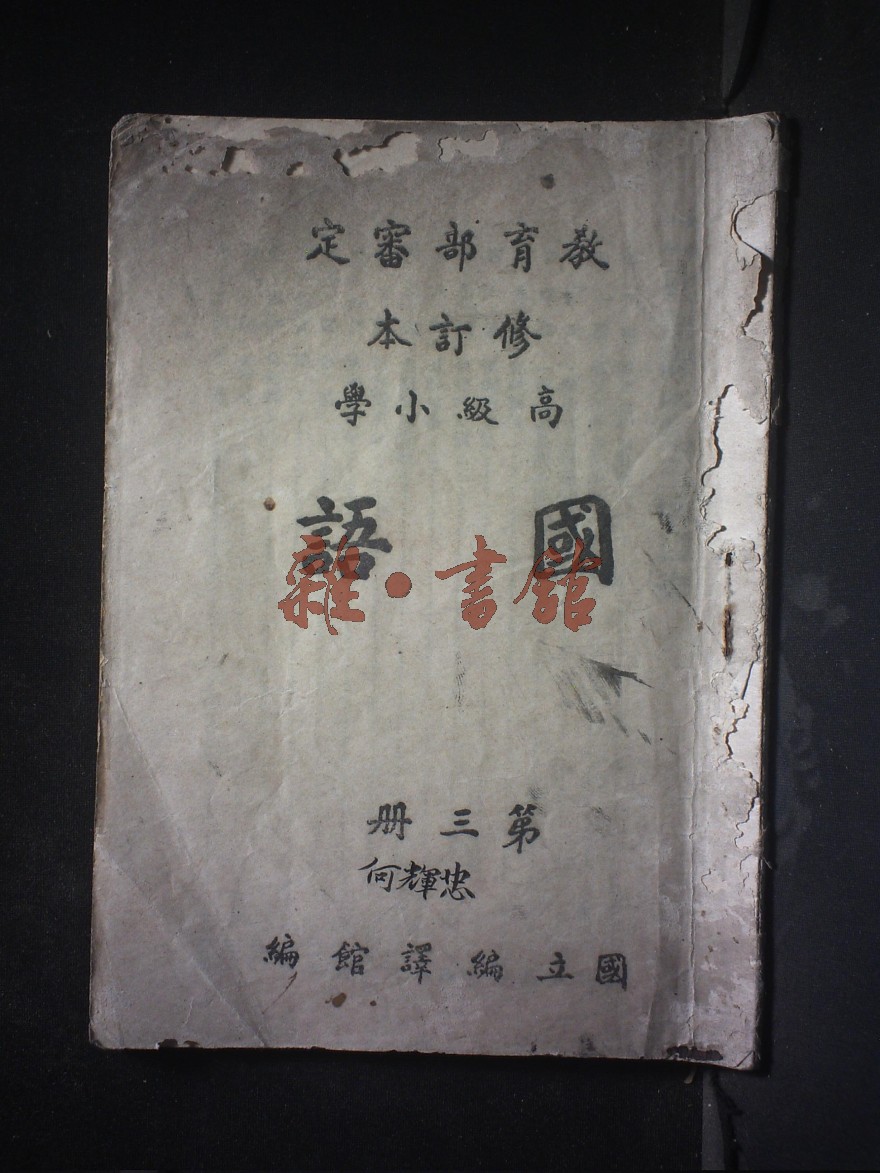 教育部審定
修訂本
高級小學
國語
雜·書館
第三册
何輝忠
國立編譯館編